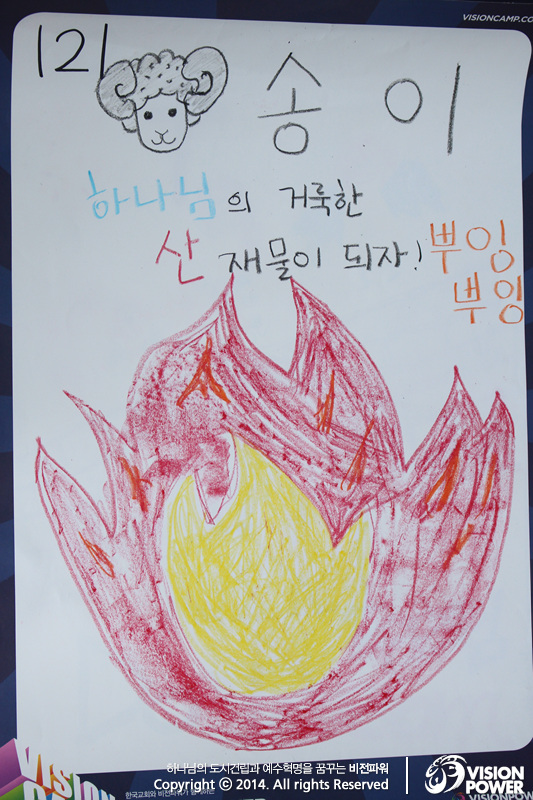 VISIONCAMP.CO
121 송이
하나님의 거룩한
산 재물이 되자! 뿌잉
뿌잉
VISION
하나님의 도시건립과 예수혁명을 꿈꾸는 비전파워
한국교회와 비전파워가
Copyright © 2014. All rights Reserved
VISION
POWER
VISIONPOW